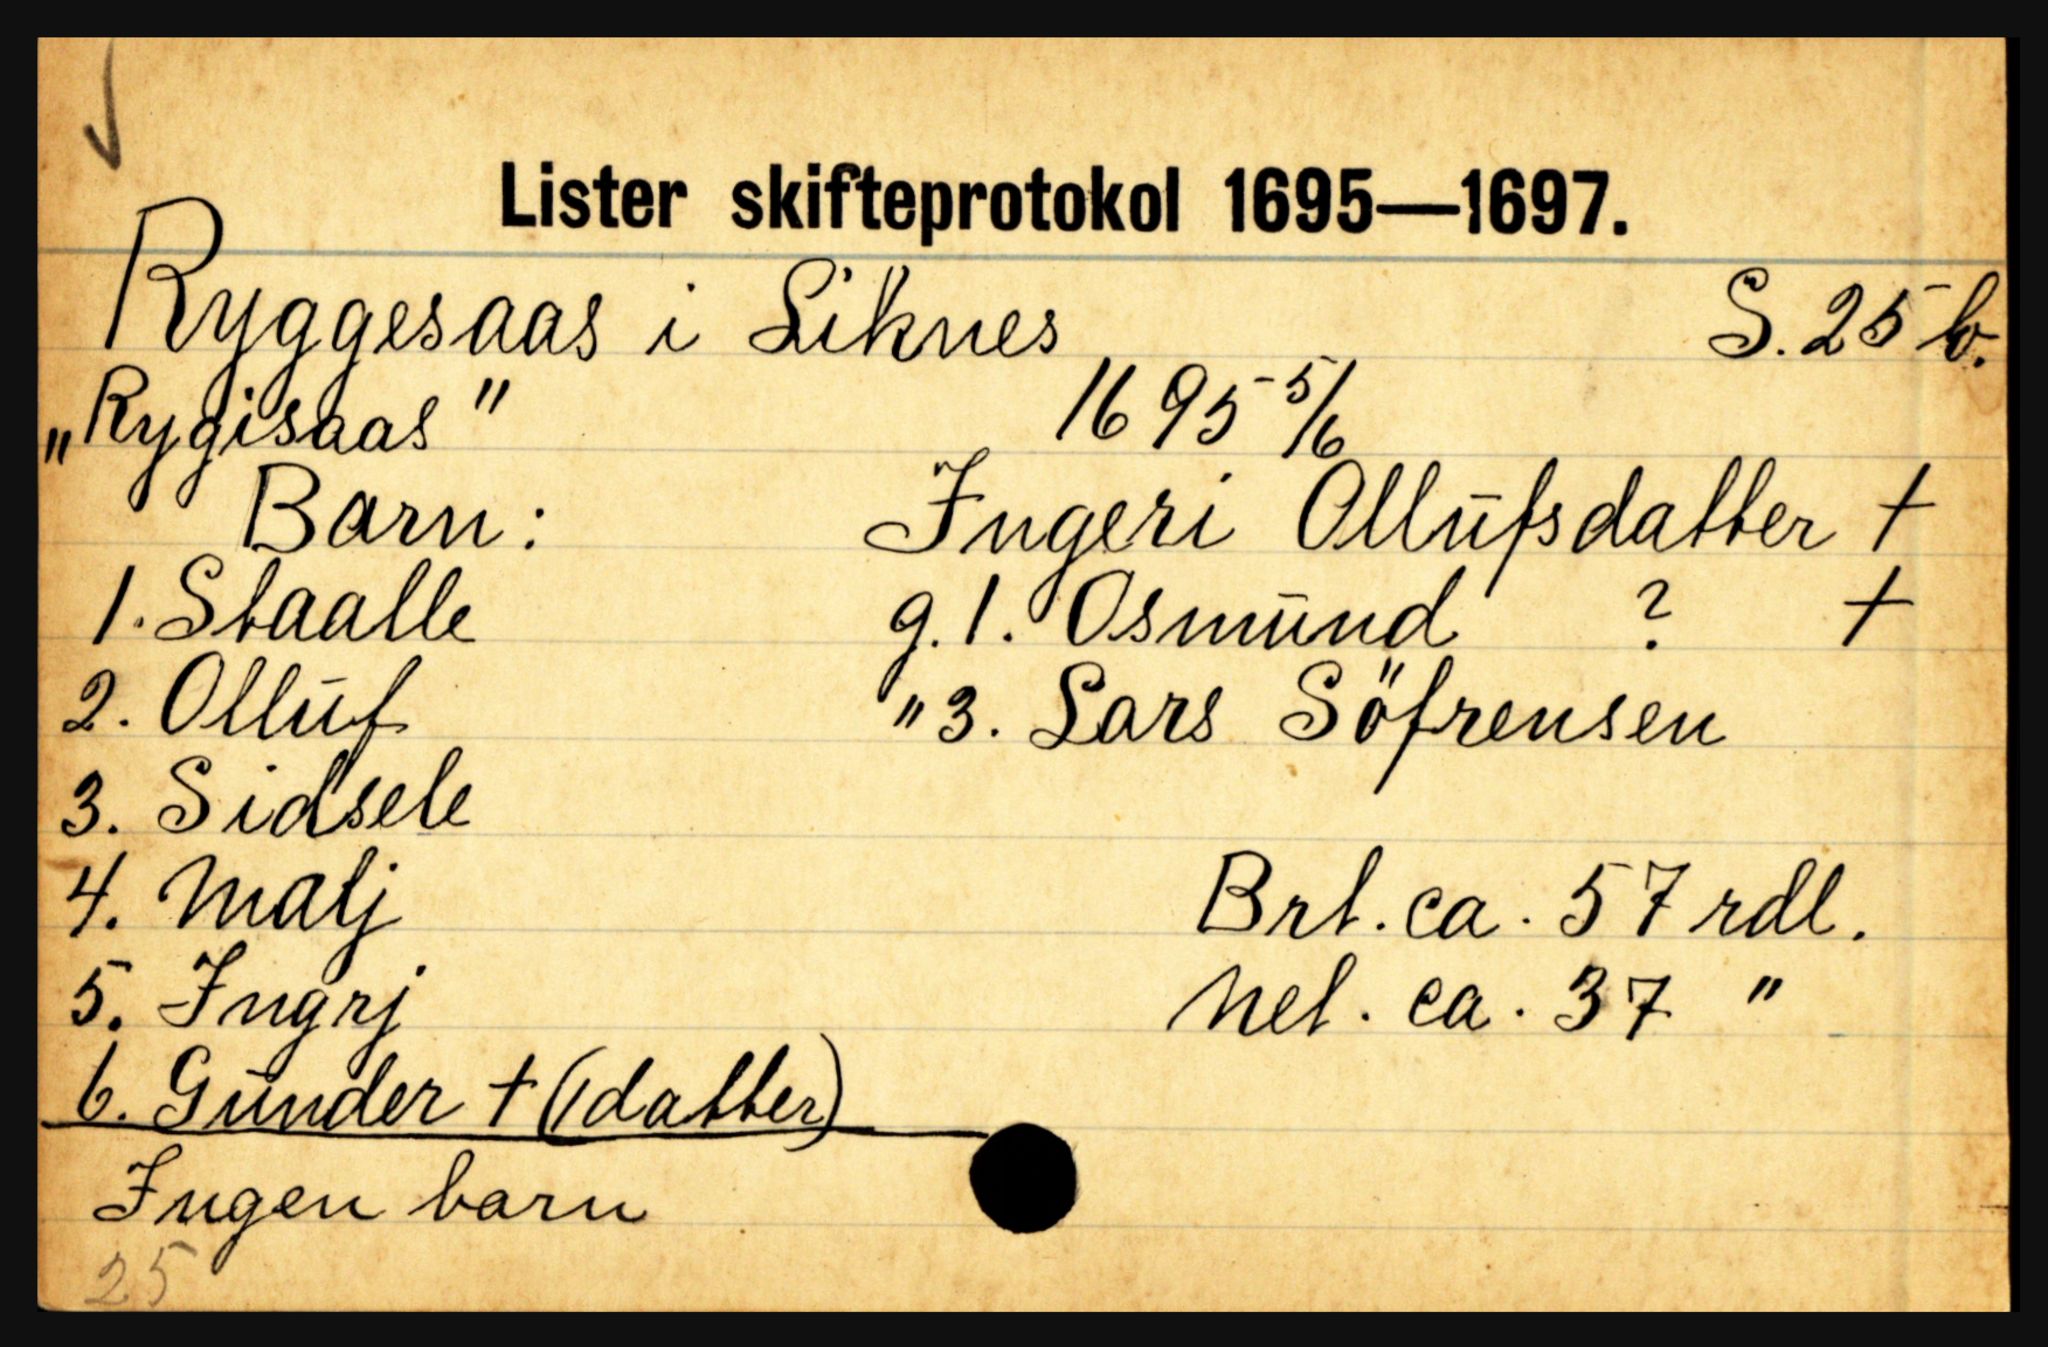 Lister skifteprotokol 1695—1697.
Ryggesaas i Liknes S. 25 b.
„Rygisaas" 1695 5/6
Barn: Ingeri Ollufsdatter +
1. Staalle g. 1. Osmund ? +
2. Olluf " 3. Lars Söfrensen
3. Sidsele
4. Malj Brt. ca. 57 rdl.
5. Ingrj Net. ca. 37 "
6. Gunder + (1 datter)
Ingen barn
25